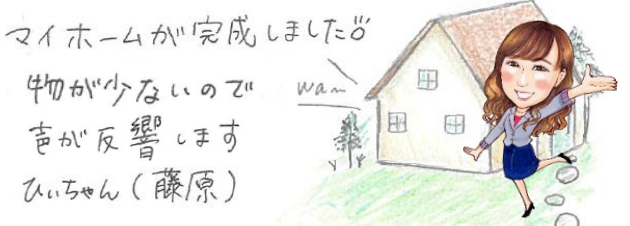 マイホームが完成しました
物が少ないので
声が反響します
ひぃちゃん(藤原)
wa~